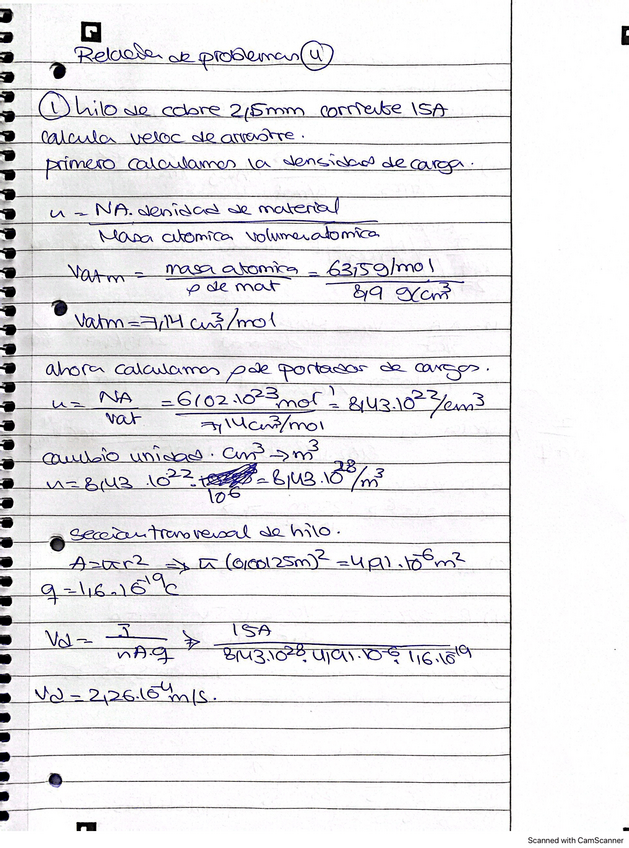 Relación de problemas 4
① hilo de cobre 2,5mm corriente 15A
calcula veloc de arrastre.
primero calculamos la densidad de carga.
n = NA. denidad de material
Masa atomica volumen atomica
Vatm = masa atomica = 63,5g/mol
ρ de mat 8,9 g/cm³
Vatm = 7,14 cm³/mol
ahora calculamos ρ de portador de cargas.
n = NA = 6,02.10²³ mol⁻¹ = 8,43.10²²/cm³
Vat 7,14cm³/mol
cambio unidad. cm³ → m³
n = 8,43 . 10²² . 10⁶ = 8,43.10²⁸/m³
sección tranversal de hilo.
A = πr² ⇒ π (0,00125m)² = 4,91.10⁻⁶ m²
q = 1,6.10⁻¹⁹C
Vd = I ⇒ 15A
nA.q 8,43.10²⁸. 4,91.10⁻⁶. 1,6.10⁻¹⁹
Vd = 2,26.10⁻⁴m/s.
Scanned with CamScanner